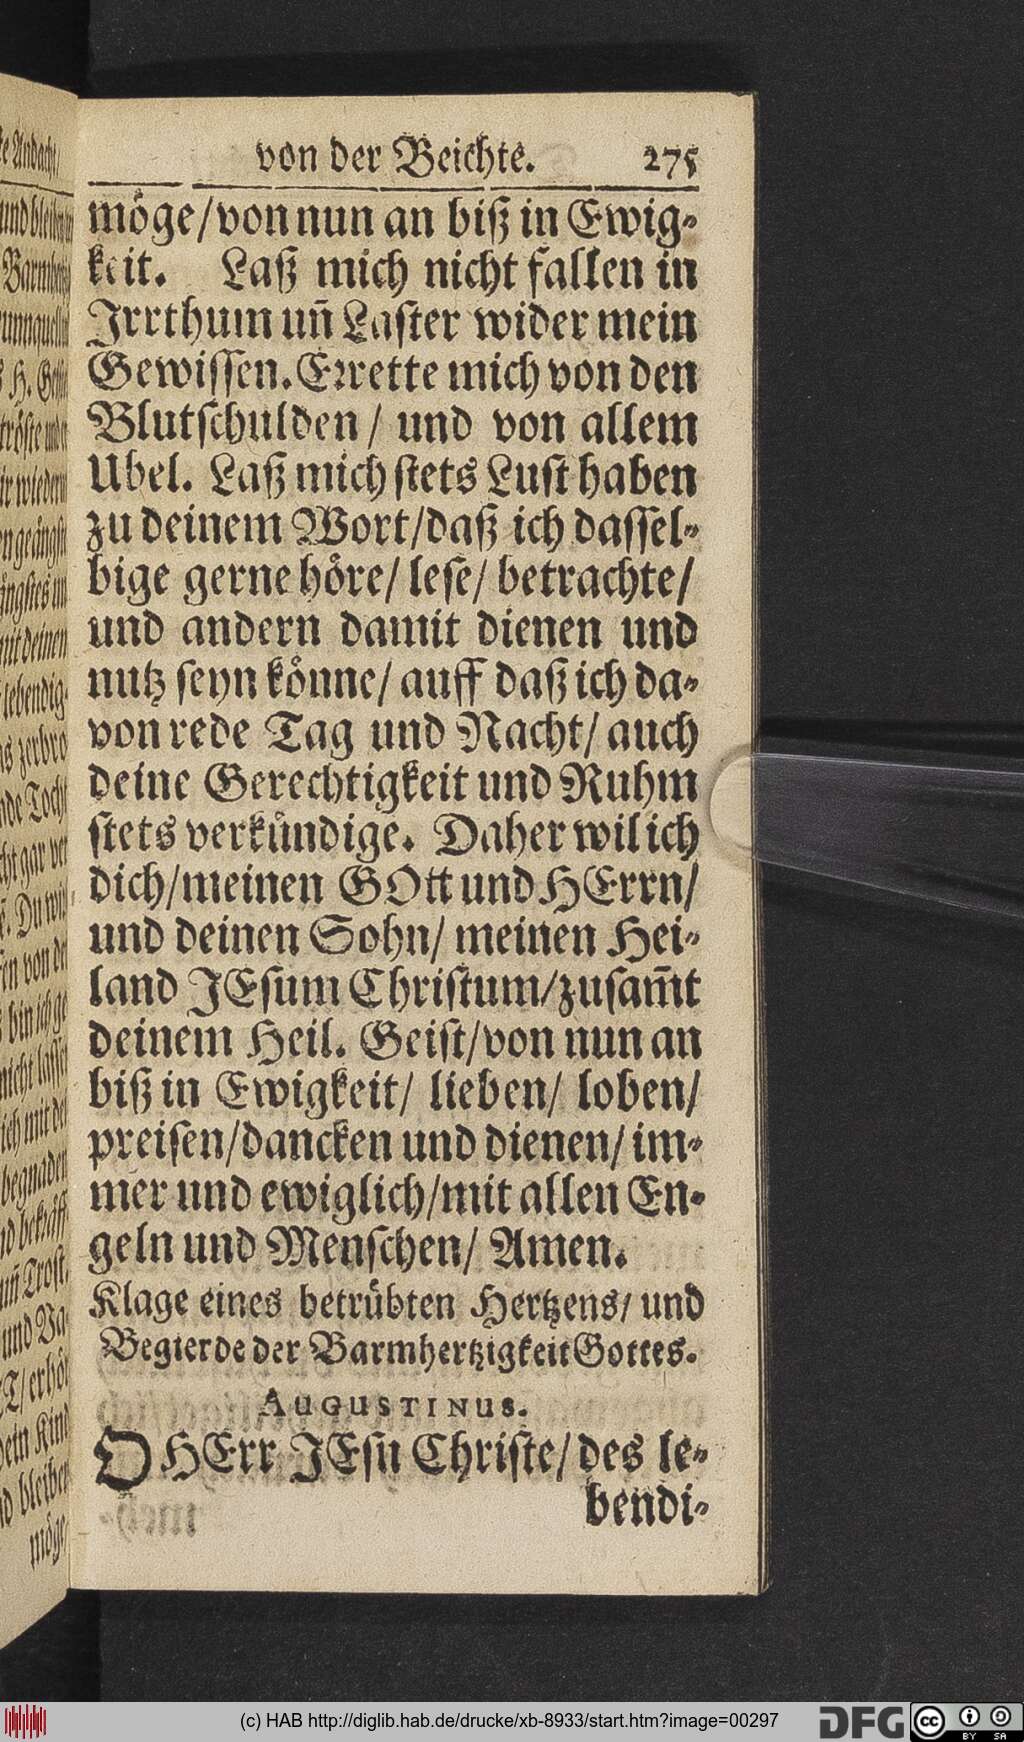 von der Beichte. 275
möge/ von nun an biß in Ewig-
keit. Laß mich nicht fallen in
Irrthum uñ Laster wider mein
Gewissen. Errette mich von den
Blutschulden / und von allem
Ubel. Laß mich stets Lust haben
zu deinem Wort/ daß ich dassel-
bige gerne höre/ lese/ betrachte/
und andern damit dienen und
nutz seyn könne/ auff daß ich da-
von rede Tag und Nacht/ auch
deine Gerechtigkeit und Ruhm
stets verkündige. Daher wil ich
dich/ meinen GOtt und HErrn/
und deinen Sohn/ meinen Hei-
land JEsum Christum/ zusam̃t
deinem Heil. Geist/ von nun an
biß in Ewigkeit/ lieben/ loben/
preisen/ dancken und dienen/ im-
mer und ewiglich/ mit allen En-
geln und Menschen/ Amen.
Klage eines betrübten Hertzens/ und
Begierde der Barmhertzigkeit Gottes.
AUGUSTINUS.
O HErr JEsu Christe/ des le-
bendi-
(c) HAB http://diglib.hab.de/drucke/xb-8933/start.htm?image=00297
DFG
cc BY SA